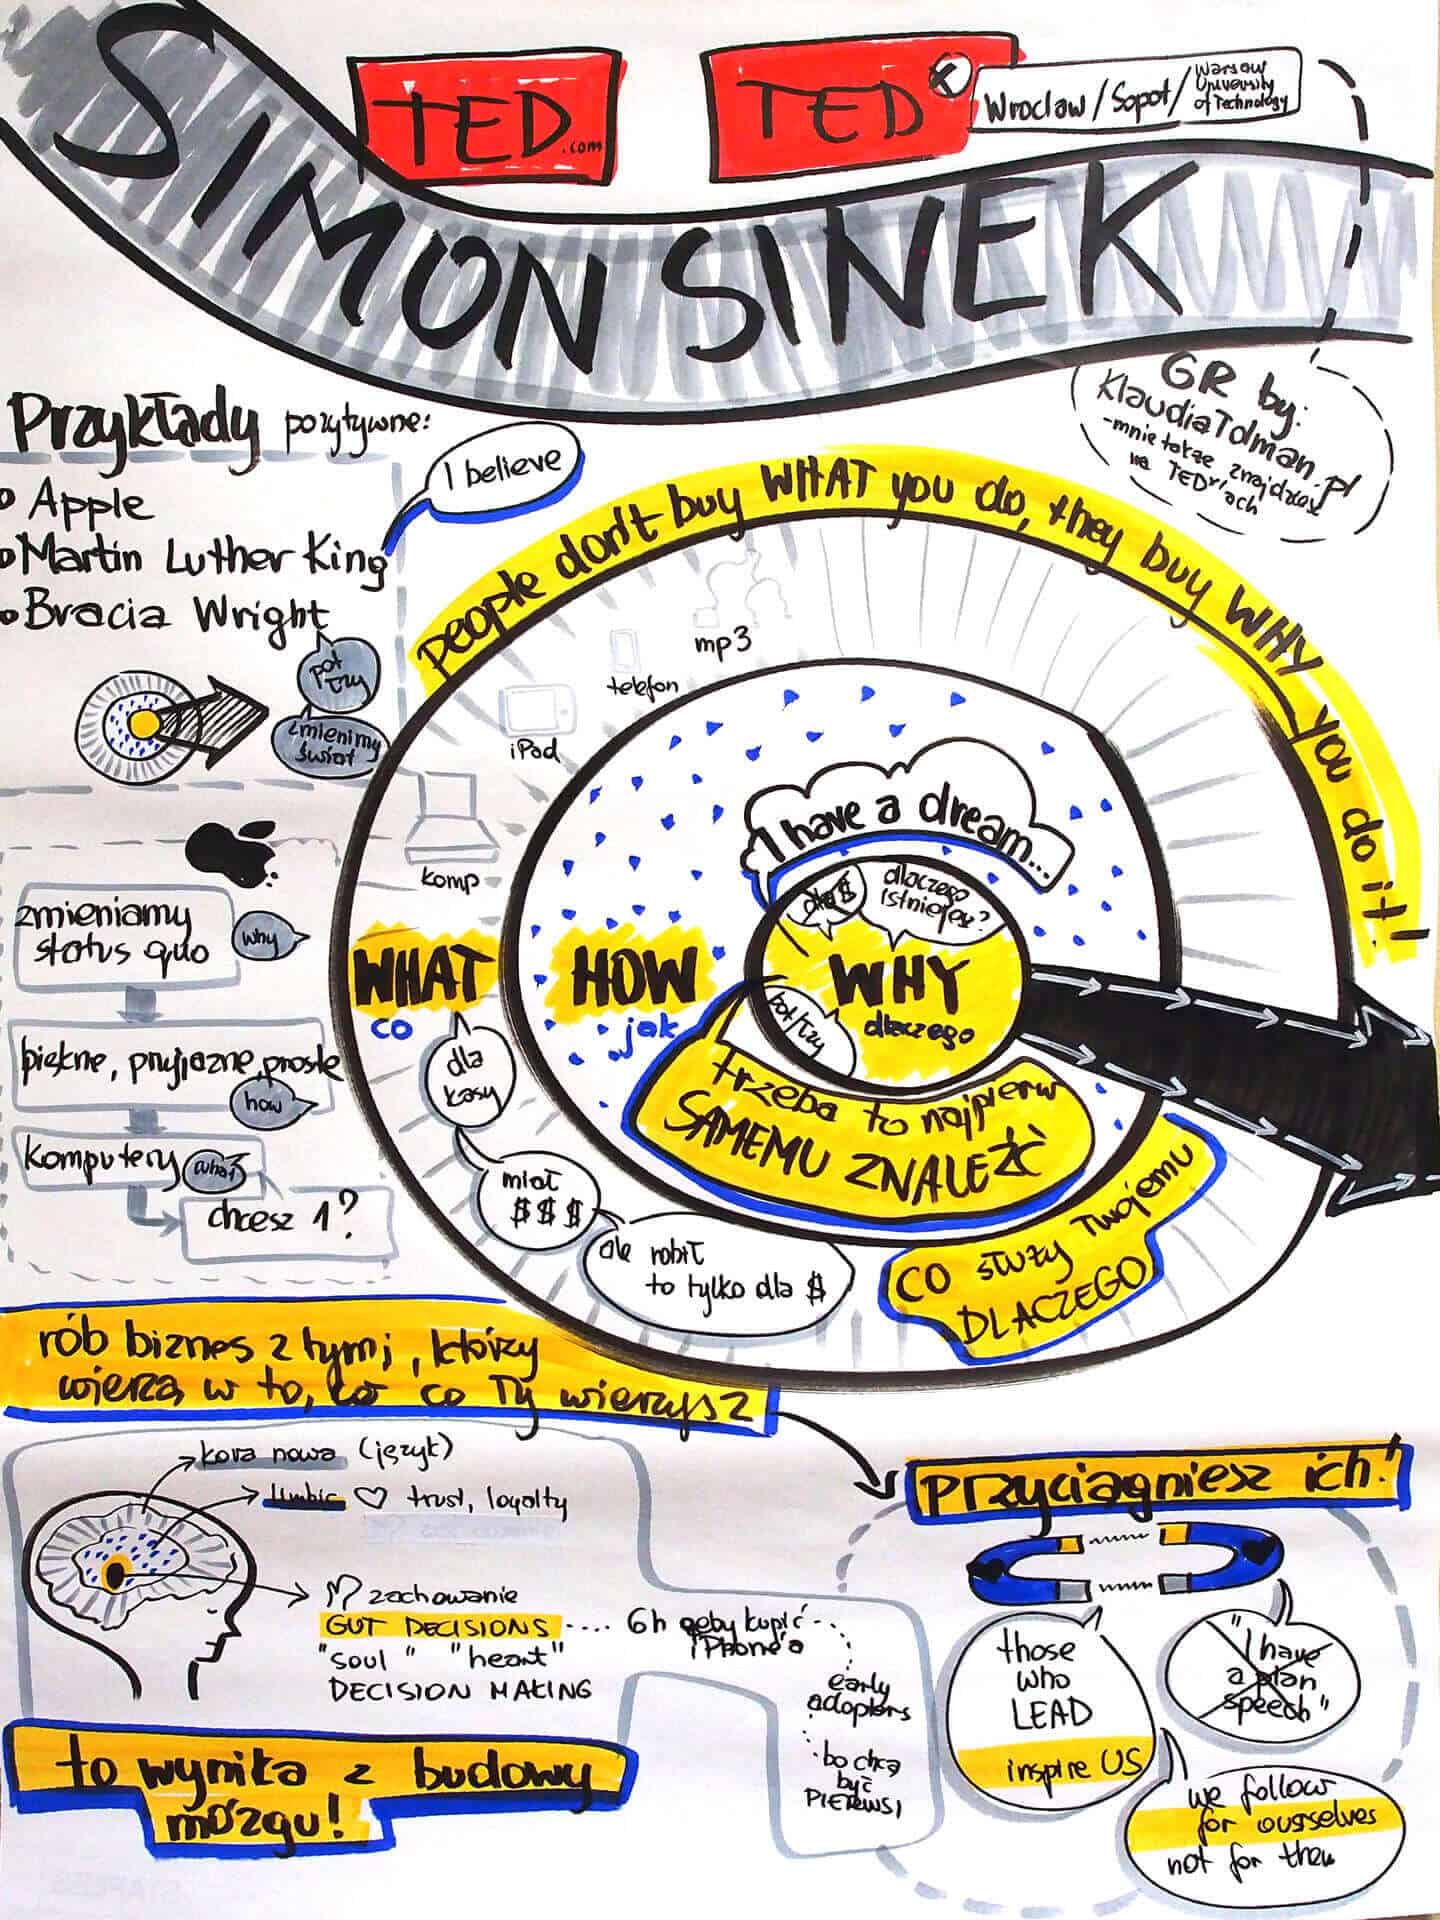 SIMON SINEK
TED.com
TEDx
Wrocław / Sopot /
Warsaw
University
of Technology
GR by:
KlaudiaTolman.pl
-mnie także znajdziesz
na
TEDx'ach
Przykłady pozytywne:
Apple
Martin Luther King
Bracia Wright
I believe
po
zmienimy
świat
people don't buy WHAT you do, they buy WHY you do it!
mp3
telefon
iPad
komp
I have a dream...
dla $
dlaczego
istniejesz?
WHAT
co
HOW
jak
WHY
dlaczego
po/czy
trzeba to najpierw
SAMEMU ZNALEŹĆ
CO służy Twojemu
DLACZEGO
dla
kasy
miał
$ $ $
ale robił
to tylko dla $
zmieniamy
status quo
why
piękne, przyjazne, proste
how
komputery
what
chcesz 1?
rób biznes z tymi, którzy
wierzą w to, co Ty wierzysz
przyciągniesz ich!
kora nowa (język)
limbic trust, loyalty
zachowanie
GUT DECISIONS
"soul" "heart"
DECISION MAKING
6h żeby kupić
iPhone'a
early
adopters
bo chcą
być
PIERWSI
to wynika z budowy
mózgu!
those
who
LEAD
inspire US
"I have
a plan
speech"
we follow
for ourselves
not for them